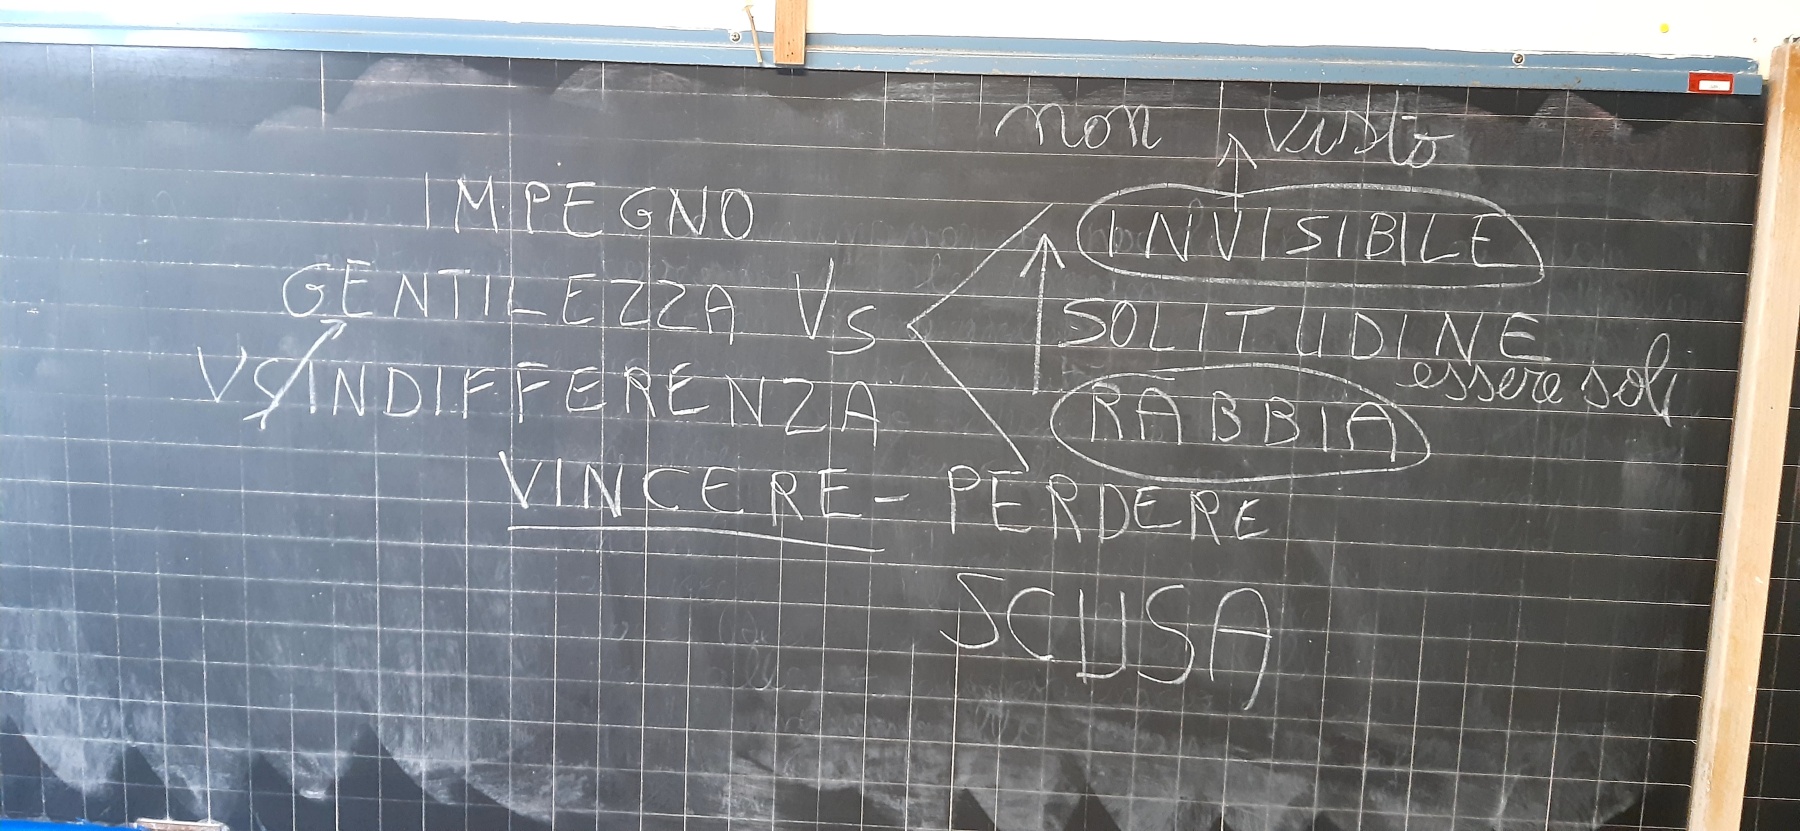 non visto
IMPEGNO
INVISIBILE
GENTILEZZA VS
SOLITUDINE
essere soli
VS INDIFFERENZA
RABBIA
VINCERE - PERDERE
SCUSA